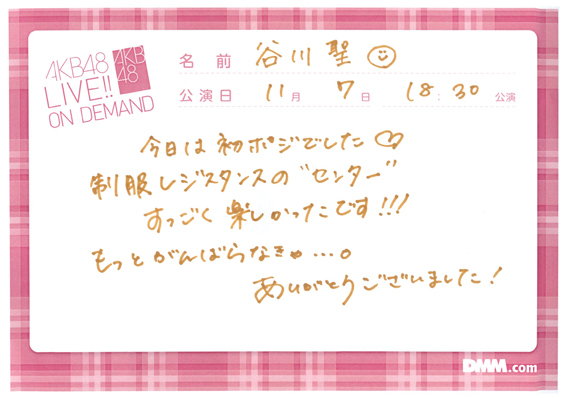 AKB48
LIVE!!
ON DEMAND
AKB
48
名前 谷川聖
公演日 11月 7日 18:30公演
今日は初ポジでした♡
制服レジスタンスの"センター"
すっごく楽しかったです!!!
もっとがんばらなきゃ…。
ありがとうございました!
DMM.com